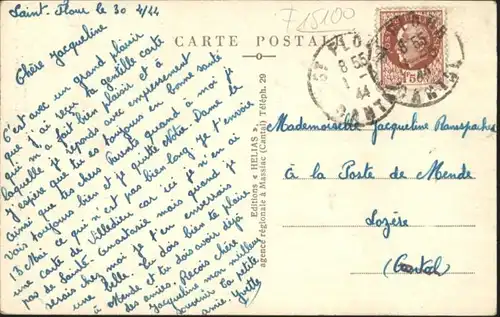 Saint-Flour le 30 4/44
F15100
CARTE POSTALE
Chère Jacqueline
C'est avec un grand plaisir
que j'ai reçu ta gentille carte
qui m'a fait bien plaisir et à
laquelle je réponds avec empressement
J'espère que tu es toujours en bonne santé
ainsi que tes chers Parents quand à moi je
vais toujours bien et je quitte Notre Dame le
13 Mai ce qui n'est pas bien long. je t'envoie
une carte de Villedieu car ici je n'en ai
pas de Sainte-Anastasie mais quand je
serais chez moi je t'en enverrais
une belle. Tu dois bien te plaire
à Mende et tu dois avoir déjà
des amies. Reçois chère
Jacqueline mes meilleurs
souvenirs La petite
amie Yvette
Editions « HELIAS »
agence régionale à Massiac (Cantal) Téléph. 29
ST FLOUR
8 55
1 - 5
44
CANTAL
Mademoiselle Jacqueline
à la Poste de Mende
Lozère
(Cantal)